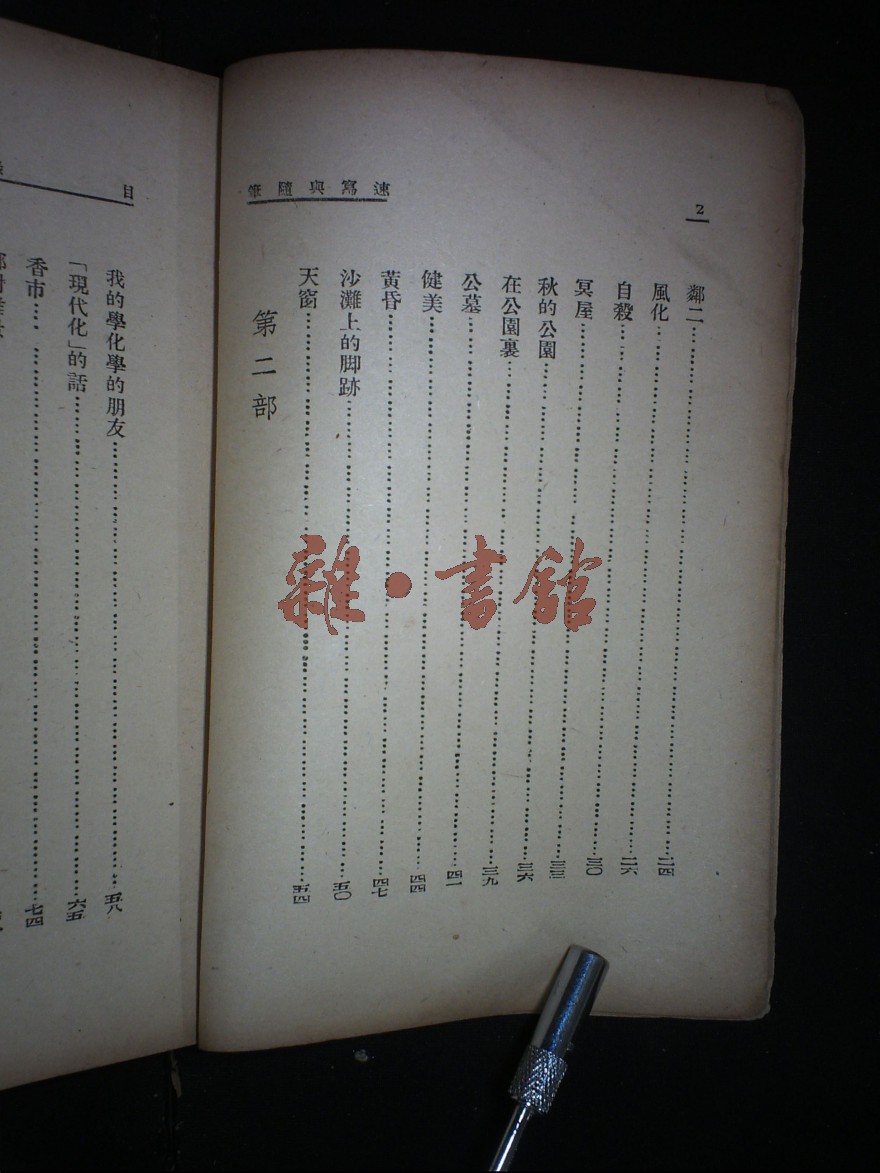 速寫與隨筆
2
鄰二……二四
風化……二六
自殺……三〇
冥屋……三三
秋的公園……三六
在公園裏……三九
公墓……四一
健美……四四
黃昏……四七
沙灘上的脚跡……五〇
天窗……五四
第二部
目
我的學化學的朋友……五八
「現代化」的話……六五
香市……七四
雜·書館